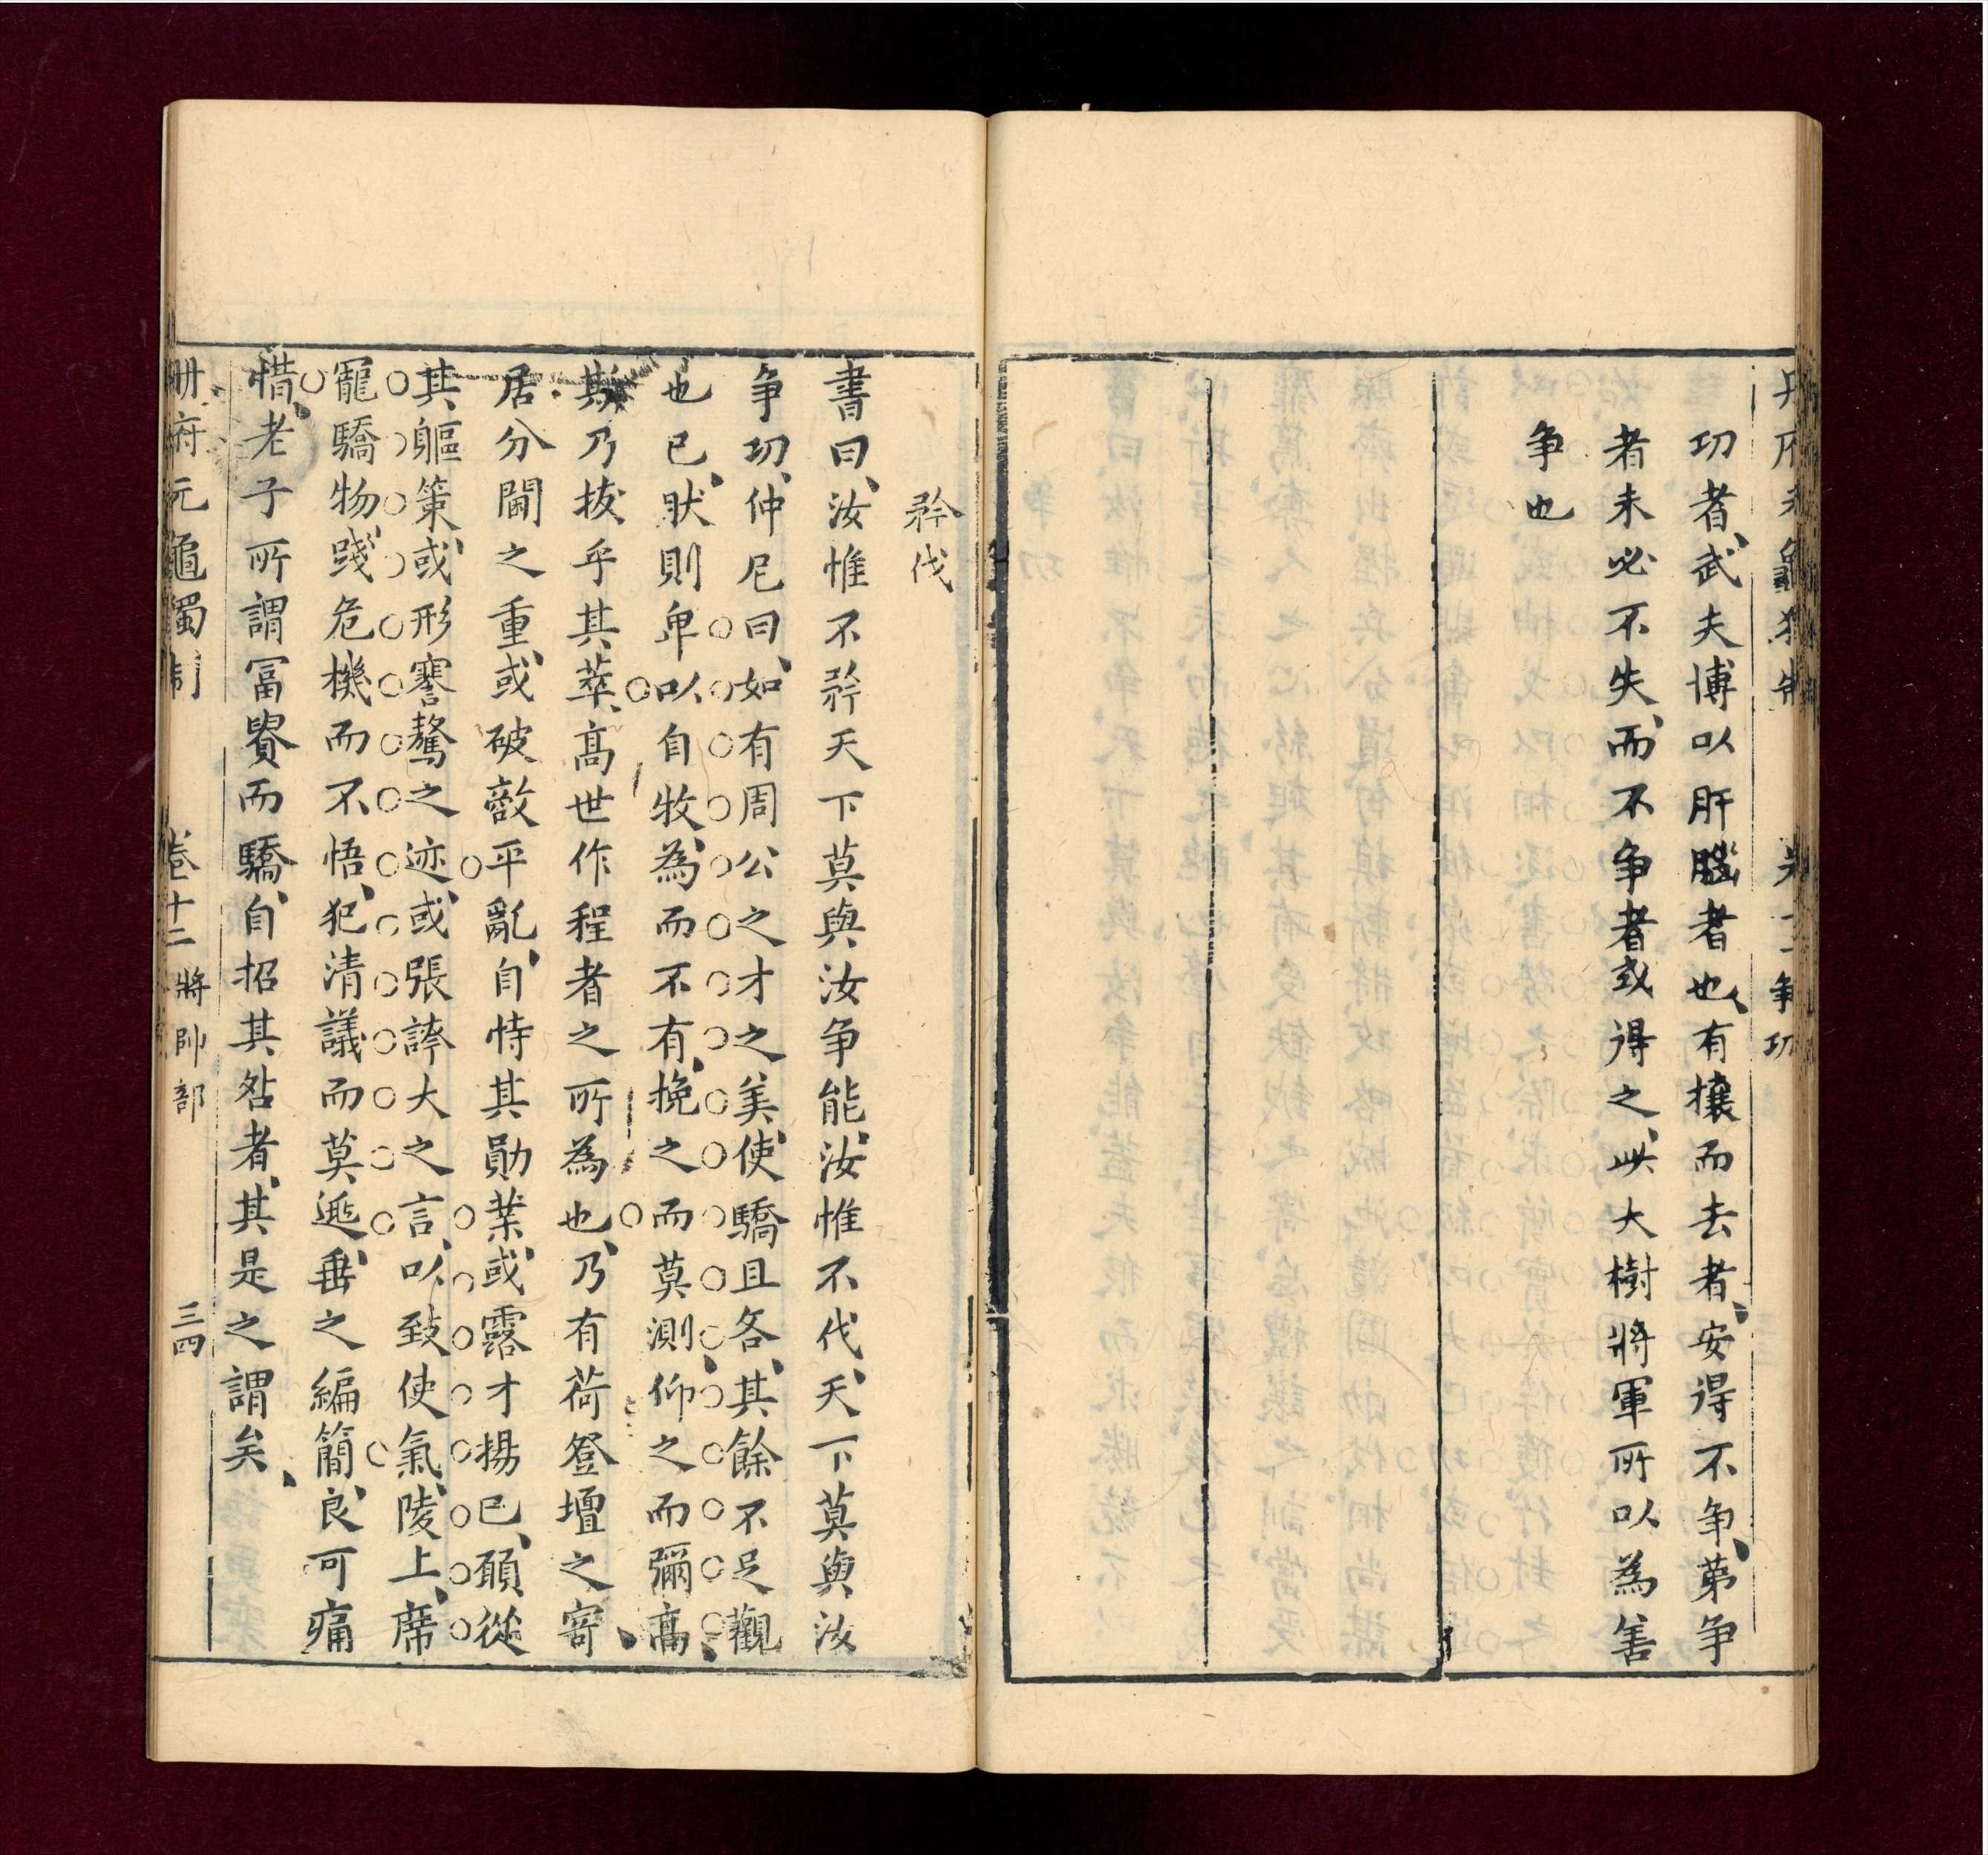 功者、武夫博以肝腦者也、有攘而去者、安得不争、第争
者未必不失、而不争者或得之、此大樹將軍所以為善
争也
矜伐
書曰、汝惟不矜天下莫與汝争能、汝惟不伐、天下莫與汝
争功、仲尼曰、如有周公之才之美、使驕且吝、其餘不足觀
也已、狀則卑以自牧、為而不有、挽之而莫測、仰之而彌高、
斯乃拔乎其萃、高世作程者之所為也、乃有荷登壇之寄、
居分閫之重、或破敵平亂、自恃其勛業、或露才揚已、頋從
其軀策、或形謇驁之迹、或張誇大之言、以致使氣陵上、席
寵驕物、踐危機而不悟、犯清議而莫遯、垂之編簡、良可痛
惜、老子所謂冨貴而驕、自招其咎者、其是之謂矣、
册府元龜獨制 卷十二 將帥部 三四